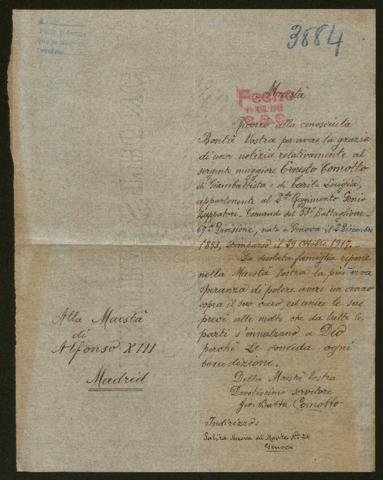 3884
Maestà
Fecho
Ricorro alla conosciuta
Bontà Vostra per avere la grazia
di una notizia relativamente al
sergente maggiore Ernesto Comotto
di Giambattista e di Luigia,
appartenente al 2do Reggimento Genio
Zappatori, Comand. del 53° Battaglione
67a Divisione, nato a Genova il 2 Dicembre
1893, scomparso il 29 Ottobre 1917.
La desolata famiglia ripone
nella Maestà Vostra la più viva
speranza di potere avere un cenno
sopra il suo caro ed unire le sue
preci alle molte che da tutte le
parti s'innalzano a Dio
perchè Le conceda ogni
benedizione.
Della Maestà Vostra
Devotissimo servitore
Gio. Batta Comotto
Indirizzo:
Salita Nuova di No. 24
Genova
Alla Maestà
di
Alfonso XIII
Madrid